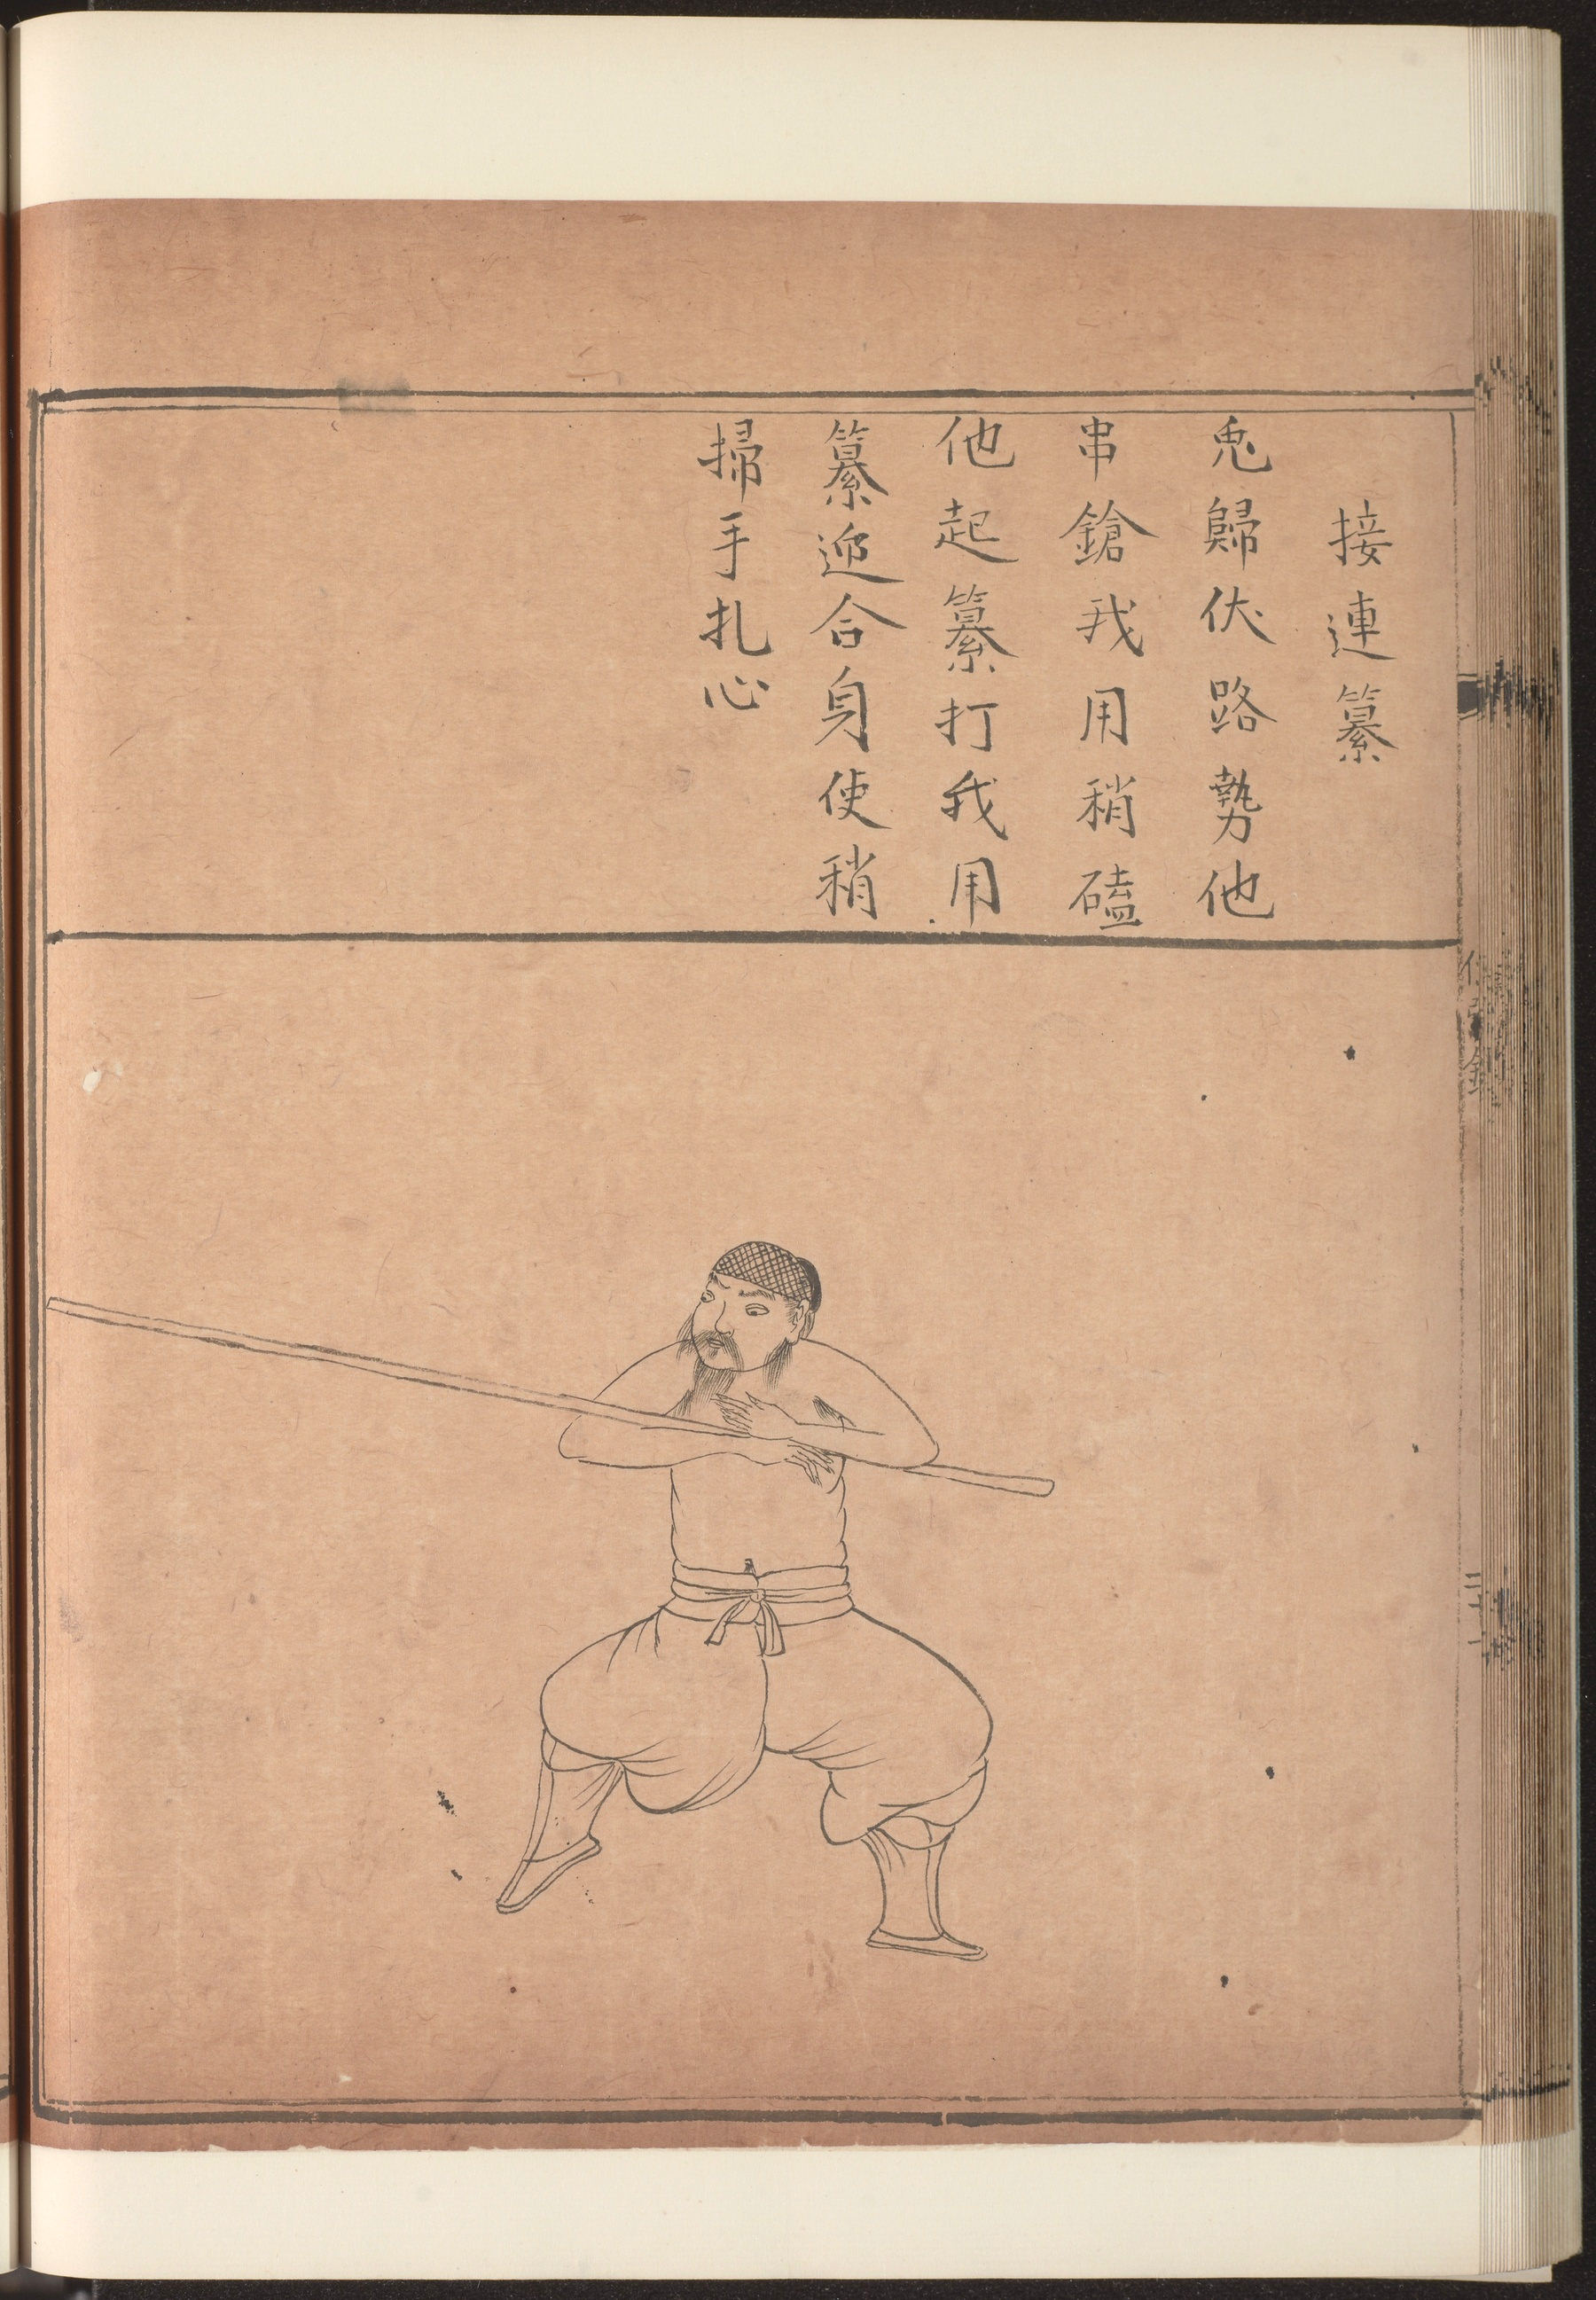 接連纂
兎歸伏路勢他
串鎗我用稍磕
他起纂打我用
纂迎合身使稍
掃手扎心